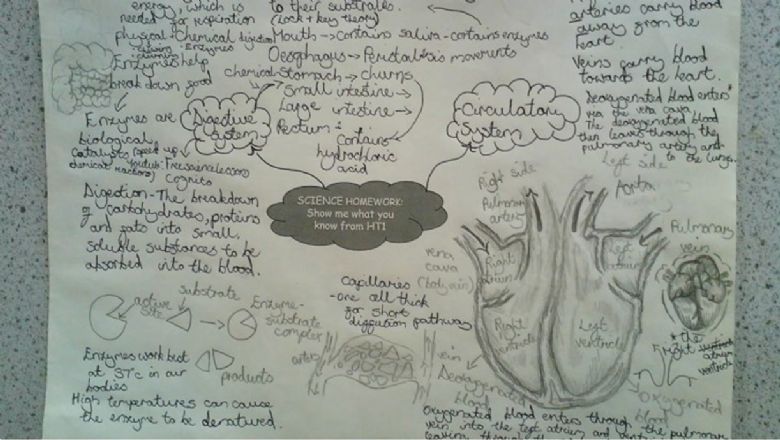 energy, which is
needed for respiration
physical + chemical digestion
Enzymes
Enzymes help
break down food
to their substrates.
(lock + key theory)
Mouth → contains saliva - contains enzymes
Oesophagus → movements
chemical Stomach → churns
Small intestine →
Large intestine →
Rectum:
Contains
hydrochloric
acid
Enzymes are
biological
catalysts (speed up
chemical reactions)
Cognito
Digestive
System
Circulatory
System
SCIENCE HOMEWORK:
Show me what you
know from HT1
Digestion - The breakdown
of carbohydrates, proteins
and fats into small,
soluble substances to be
absorbed into the blood.
substrate
active
site
Enzyme-
substrate
complex
products
Enzymes work best
at 37°c in our
bodies
High temperatures can cause
the enzyme to be denatured.
Capillaries
- one cell thick
for short
pathway
artery
vein
arteries carry blood
away from the
heart.
Veins carry blood
towards the heart.
Deoxygenated blood enters
via the vena cava
The deoxygenated blood
then leaves through the
pulmonary artery and
to the lungs.
Right side
Left side
Pulmonary
artery
Aorta
Pulmonary
vein
vena
cava
Right
atrium
Left
atrium
Right
ventricle
Left
ventricle
Deoxygenated
blood
Oxygenated
blood
Oxygenated blood enters through the pulmonary
vein into the left atrium and